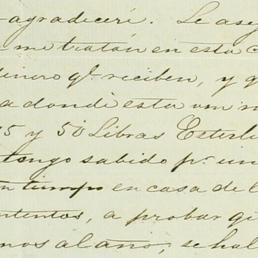 agradeceré. Le ase
me tratan en esta c
dinero qe. reciben, y q
a donde esta um m
5 y 50 Libras Esterli
tengo sabido pr. un
n tiempo en casa de l
ntentos, a probar qu
mos al año, se hal